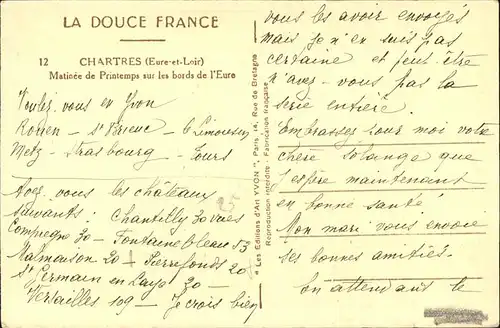 LA DOUCE FRANCE
12 CHARTRES (Eure-et-Loir)
Matinée de Printemps sur les bords de l'Eure
Voulez vous en Yvon
Rouen — St Brieuc — le Limousin
Metz — Strasbourg — Tours
Avez vous les châteaux
suivants : Chantilly 30 vues
Compiègne 30 — Fontainebleau 53
Malmaison 20 — Pierrefonds 20
St Germain en Laye 20 —
Versailles 109 — Je crois bien
25
" Les Editions d'Art YVON ", Paris, 15, Rue de Bretagne
Reproduction interdite - Fabrication française
vous les avoir envoyés
mais je n'en suis pas
certaine et peut être
n'avez-vous pas la
série entière.
Embrasses pour moi votre
chère Solange que
j'espère maintenant
en bonne santé
Mon mari vous envoie
ses bonnes amitiés.
En attendant le